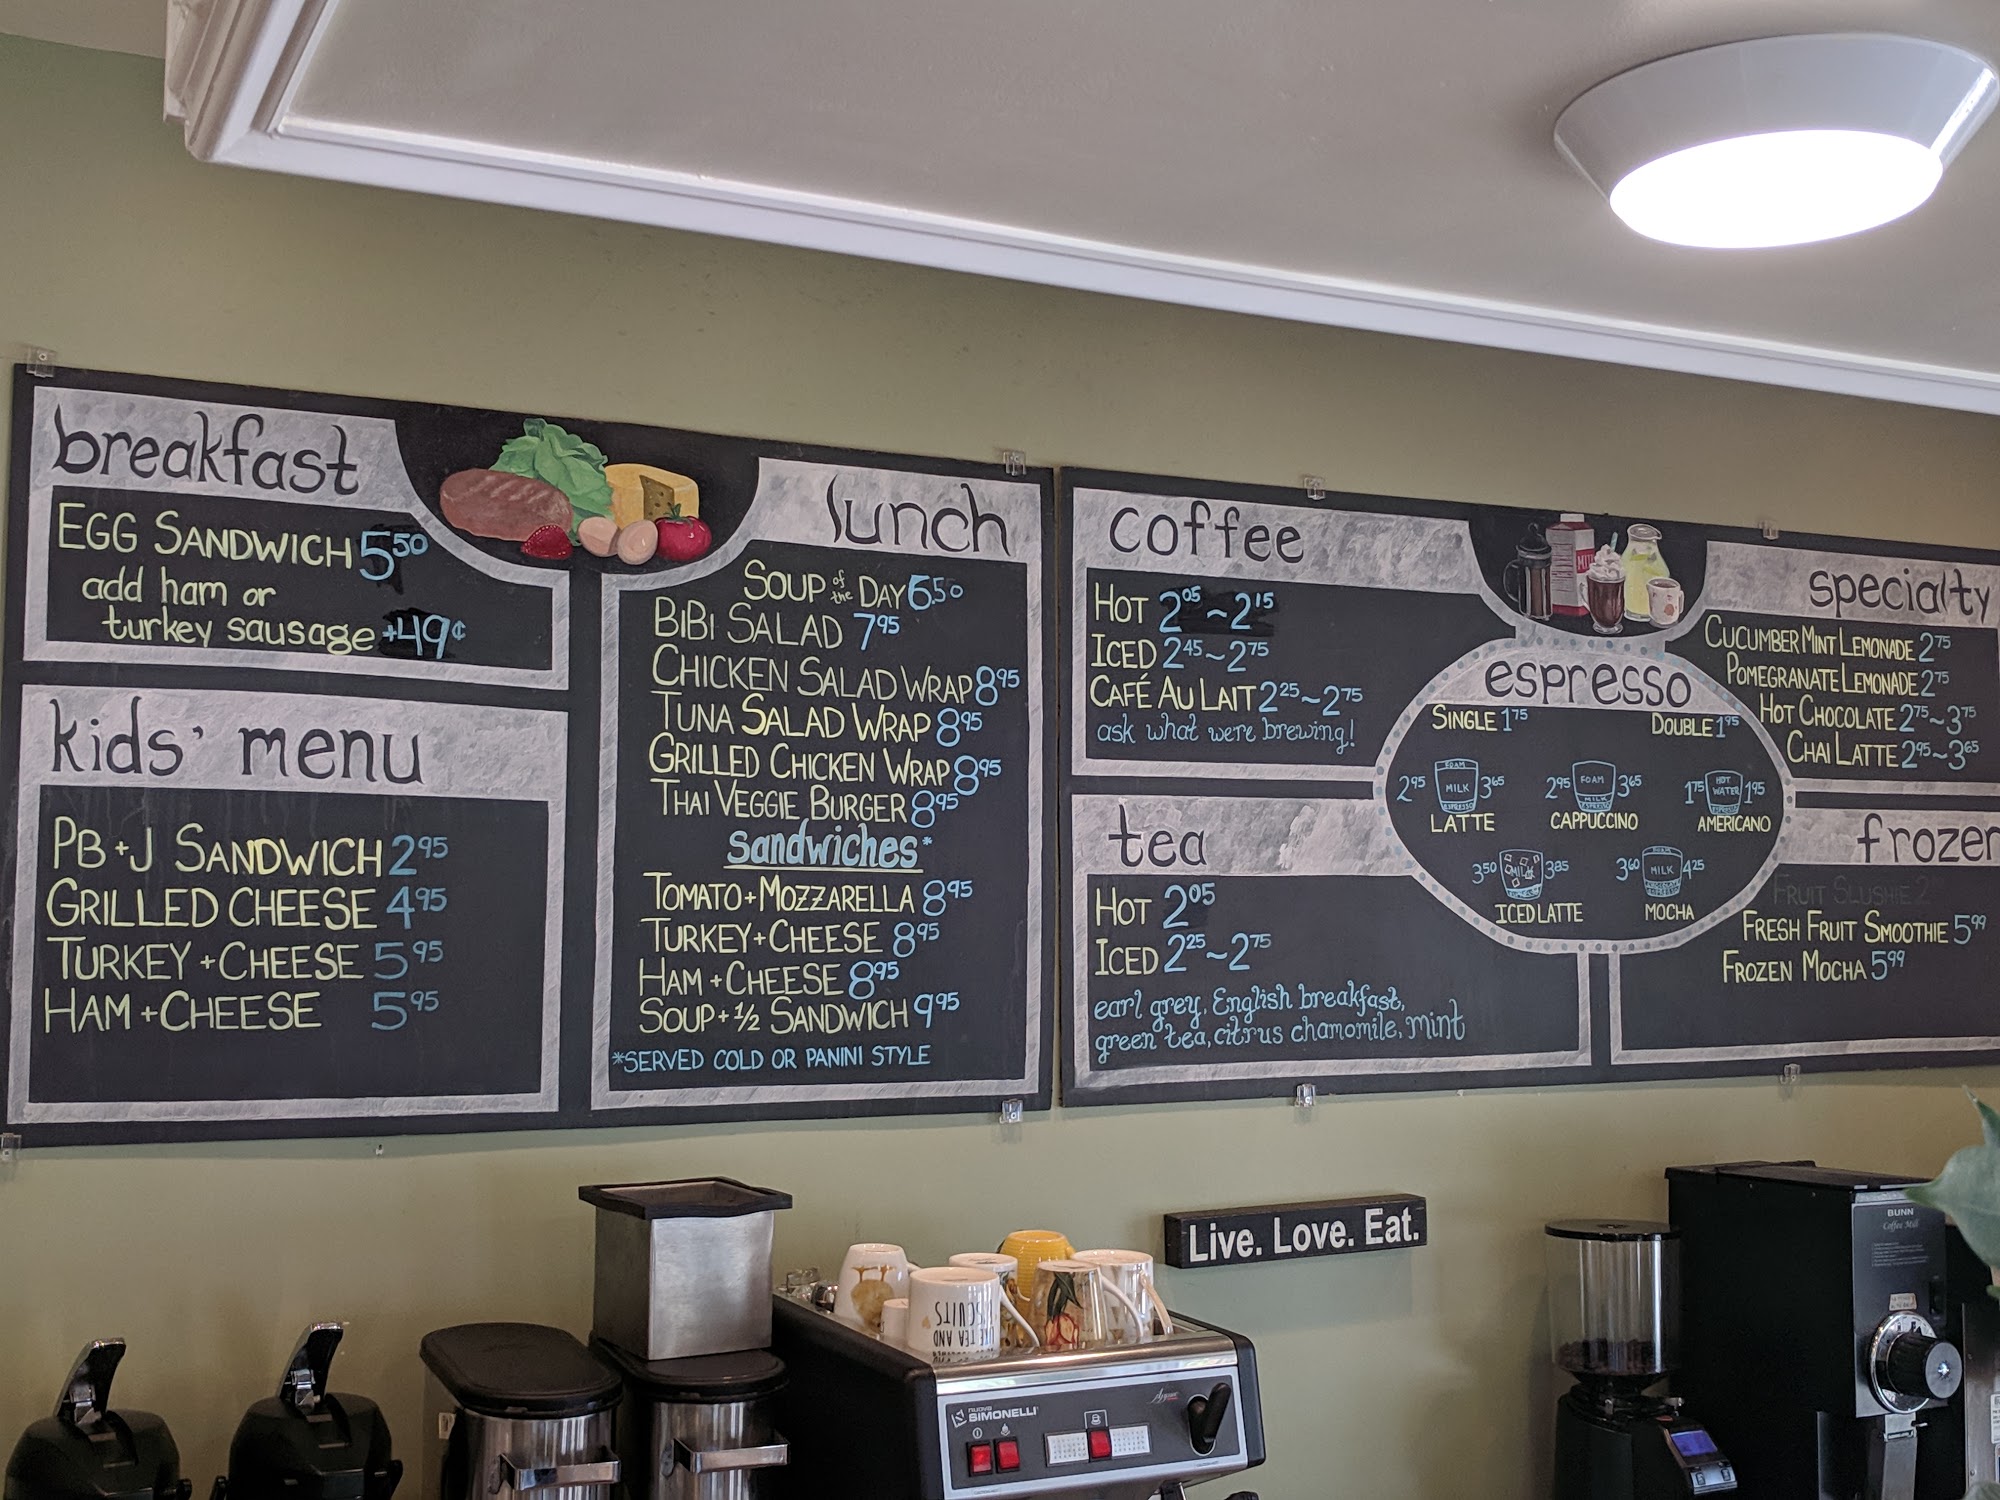 breakfast
EGG SANDWICH 5.50
add ham or
turkey sausage +49¢
kids' menu
PB+J SANDWICH 2.95
GRILLED CHEESE 4.95
TURKEY+CHEESE 5.95
HAM+CHEESE 5.95
lunch
SOUP of the DAY 6.50
BIBI SALAD 7.95
CHICKEN SALAD WRAP 8.95
TUNA SALAD WRAP 8.95
GRILLED CHICKEN WRAP 8.95
THAI VEGGIE BURGER 8.95
sandwiches*
TOMATO+MOZZARELLA 8.95
TURKEY+CHEESE 8.95
HAM+CHEESE 8.95
SOUP+½ SANDWICH 9.95
*SERVED COLD OR PANINI STYLE
coffee
HOT 2.05~2.15
ICED 2.45~2.75
CAFÉ AU LAIT 2.25~2.75
ask what were brewing!
tea
HOT 2.05
ICED 2.25~2.75
earl grey, English breakfast,
green tea, citrus chamomile, mint
espresso
SINGLE 1.75 DOUBLE 1.95
2.95 FOAM MILK ESPRESSO 3.65
LATTE
2.95 FOAM MILK ESPRESSO 3.65
CAPPUCCINO
1.75 HOT WATER ESPRESSO 1.95
AMERICANO
3.50 MILK 3.85
ICED LATTE
3.60 MILK 4.25
MOCHA
specialty
CUCUMBER MINT LEMONADE 2.75
POMEGRANATE LEMONADE 2.75
HOT CHOCOLATE 2.75~3.75
CHAI LATTE 2.95~3.65
frozen
FRUIT SLUSHIE 2
FRESH FRUIT SMOOTHIE 5.99
FROZEN MOCHA 5.99
Live. Love. Eat.
BUNN
Coffee Mill
LIKE TEA AND
BISCUITS
nuova
SIMONELLI